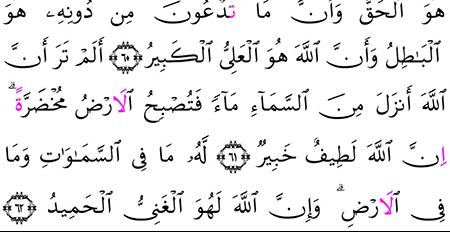 هُوَ اَ۬لْحَقُّ وَأَنَّ مَا تَدْعُونَ مِن دُونِهِۦ هُوَ
اَ۬لْبَٰطِلُ وَأَنَّ اَ۬للَّهَ هُوَ اَ۬لْعَلِيُّ اُ۬لْكَبِيرُ ٦٠ أَلَمْ تَرَ أَنَّ
اَ۬للَّهَ أَنزَلَ مِنَ اَ۬لسَّمَآءِ مَآءٗ فَتُصْبِحُ اُ۬لَارْضُ مُخْضَرَّةًۖ
اِنَّ اَ۬للَّهَ لَطِيفٌ خَبِيرٞ ٦١ لَّهُۥ مَا فِي اِ۬لسَّمَٰوَٰتِ وَمَا
فِي اِ۬لَارْضِۖ وَإِنَّ اَ۬للَّهَ لَهُوَ اَ۬لْغَنِيُّ اُ۬لْحَمِيدُ ٦٢